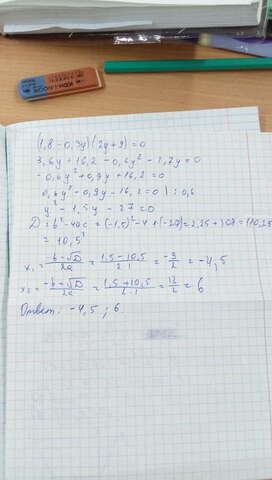 (1,8-0,3y)(2y+9)=0
3,6y+16,2-0,6y²-2,7y=0
-0,6y²+0,9y+16,2=0
0,6y²-0,9y-16,2=0 | : 0,6
y²-1,5y-27=0
D=b²-4ac=(-1,5)²-4·1·(-27)=2,25+108=110,25
=10,5²
x₁=(-b-√D)/2a=(1,5-10,5)/2·1=-9/2=-4,5
x₂=(-b+√D)/2a=(1,5+10,5)/2·1=12/2=6
Ответ: -4,5 ; 6